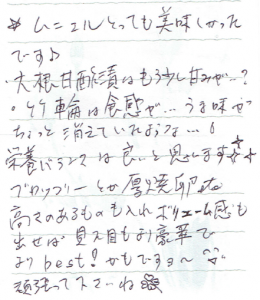 ☆ ムニエルとっても美味しかった
です♪
・大根甘酢漬はもう少し甘みが…?
・竹輪は食感が… うま味が
ちょっと消えていたような…
栄養バランスは良いと思います☆☆
ブロッコリーとか厚焼卵を
高さのあるものも入れボリューム感も
出せば 見た目もより豪華で
より best! かもですね〜
頑張って下さいね